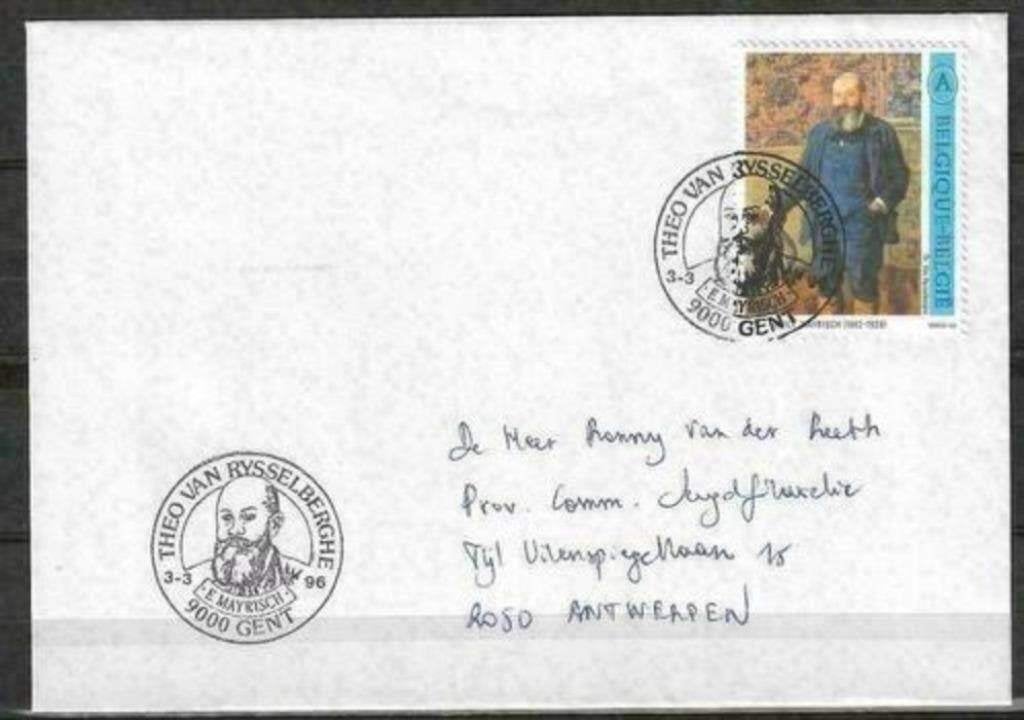 A
BELGIQUE-BELGIË
MAYRISCH (1862-1928)
THEO VAN RYSSELBERGHE
3-3
E. MAYRISCH
9000 GENT
De Heer Ronny van der
Prov. Comm. Jeugdfilatelie
Tijl Uilenspiegellaan 15
2050 ANTWERPEN
THEO VAN RYSSELBERGHE
3-3 96
· E. MAYRISCH ·
9000 GENT